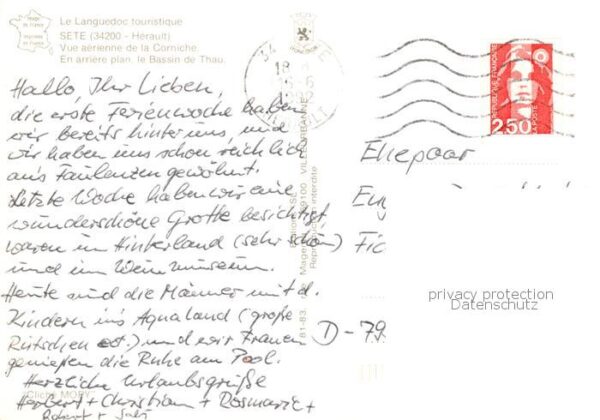 Le Languedoc touristique
SETE (34200 - Hérault)
Vue aérienne de la Corniche.
En arrière plan, le Bassin de Thau.
Hallo, Ihr Lieben,
die erste Ferienwoche haben
wir bereits hinter uns, und
wir haben uns schon reichlich
ans Faulenzen gewöhnt.
Letzte Woche haben wir eine
wunderschöne Grotte besichtigt,
waren im Hinterland (sehr schön)
und im Weinmuseum.
Heute sind die Männer mit d.
Kindern ins Aqualand (große
Rutschen etc.) und wir Frauen
genießen die Ruhe am Pool.
Herzliche Urlaubsgrüße
Herbert + Christian + Rosmarie +
Robert + Gabi
Cliché MOPY
VILLEURBANNE
Reproduction interdite
2,50
Ehepaar
D-79
privacy protection
Datenschutz